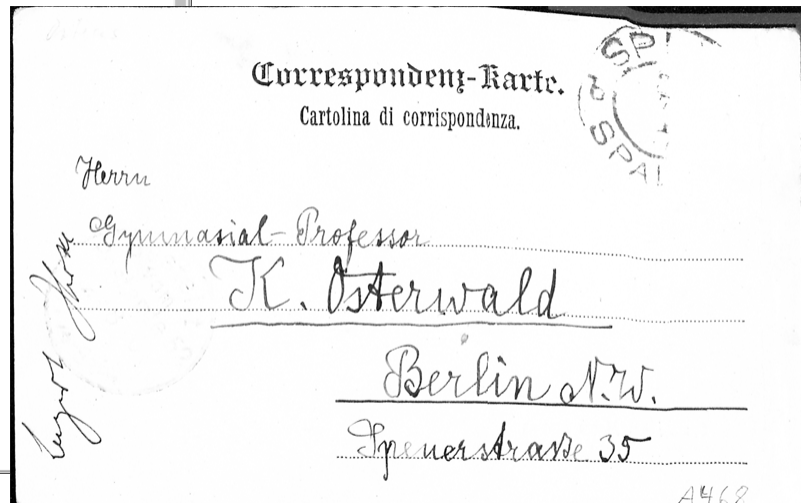 Correspondenz-Karte.
Cartolina di corrispondenza.
SPA
SPA
Herrn
Gymnasial-Professor
K. Osterwald
Berlin N.W.
Spenerstraße 35
A468